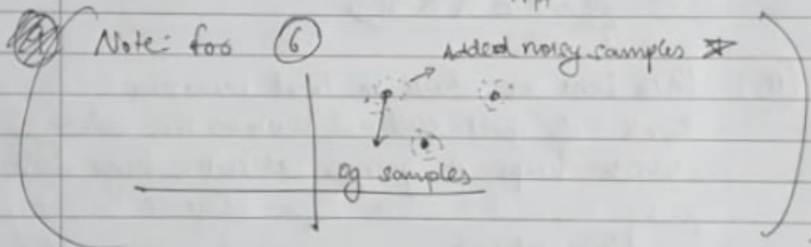 Note: foo ⑥
Added noisy samples ★
og samples